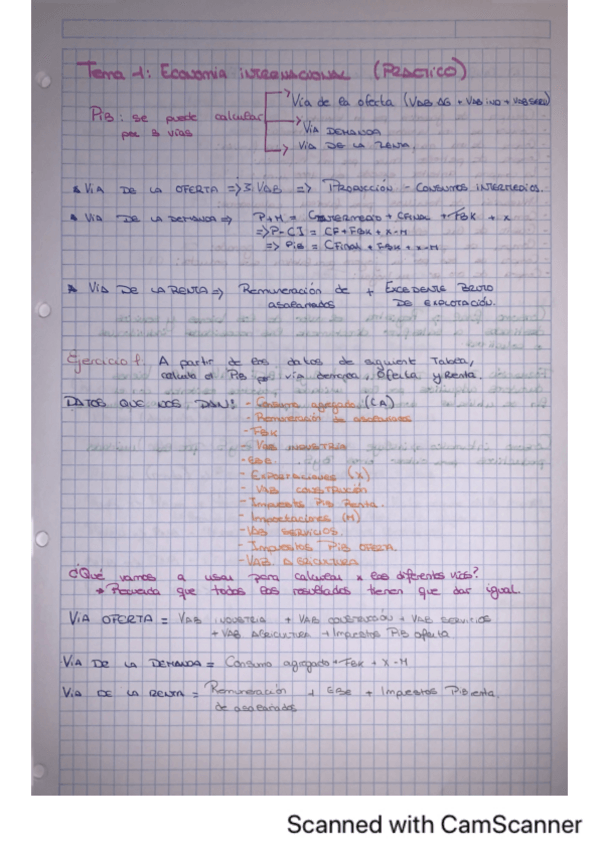 Tema 1: Economía internacional (Práctico)
PiB: se puede calcular por 3 vías
→ Vía de la oferta (VAB AG + VAB IND + VAB SERV)
→ Vía DEMANDA
→ Vía DE LA RENTA.
VíA DE LA OFERTA => 3 VAB => Producción - Consumos intermedios.
VíA DE LA DEMANDA => P+M = CIntermedio + CFinal + FBK + X
=> P-CI = CF + FBK + X-M
=> PiB = CFinal + FBK + X-M
VíA DE LA RENTA => Remuneración de asalariados + EXCEDENTE BRUTO DE EXPLOTACIÓN.
Ejercicio 1. A partir de los datos de siguiente Tabla,
calcula el PiB por vía demanda, oferta y Renta.
DATOS QUE NOS DAN: - Consumo agregado (CA)
- Remuneración de asalariados
- FBK
- VAB INDUSTRIA
- EBE.
- EXPORTACIONES (X)
- VAB CONSTRUCIÓN
- Impuestos PiB Renta.
- Importaciones (M)
- VAB SERVICIOS.
- Impuestos PiB OFERTA
- VAB AGRICULTURA
¿Qué vamos a usar para calcular x las diferentes vías?
Recuerda que todos los resultados tienen que dar igual.
VíA OFERTA = VAB INDUSTRIA + VAB CONSTRUCCIÓN + VAB SERVICIOS
+ VAB AGRICULTURA + Impuestos PiB oferta
VíA DE LA DEMANDA = Consumo agregado + FBK + X - M
VíA DE LA RENTA = Remuneración de asalariados + EBE + Impuestos PiB renta.
Scanned with CamScanner